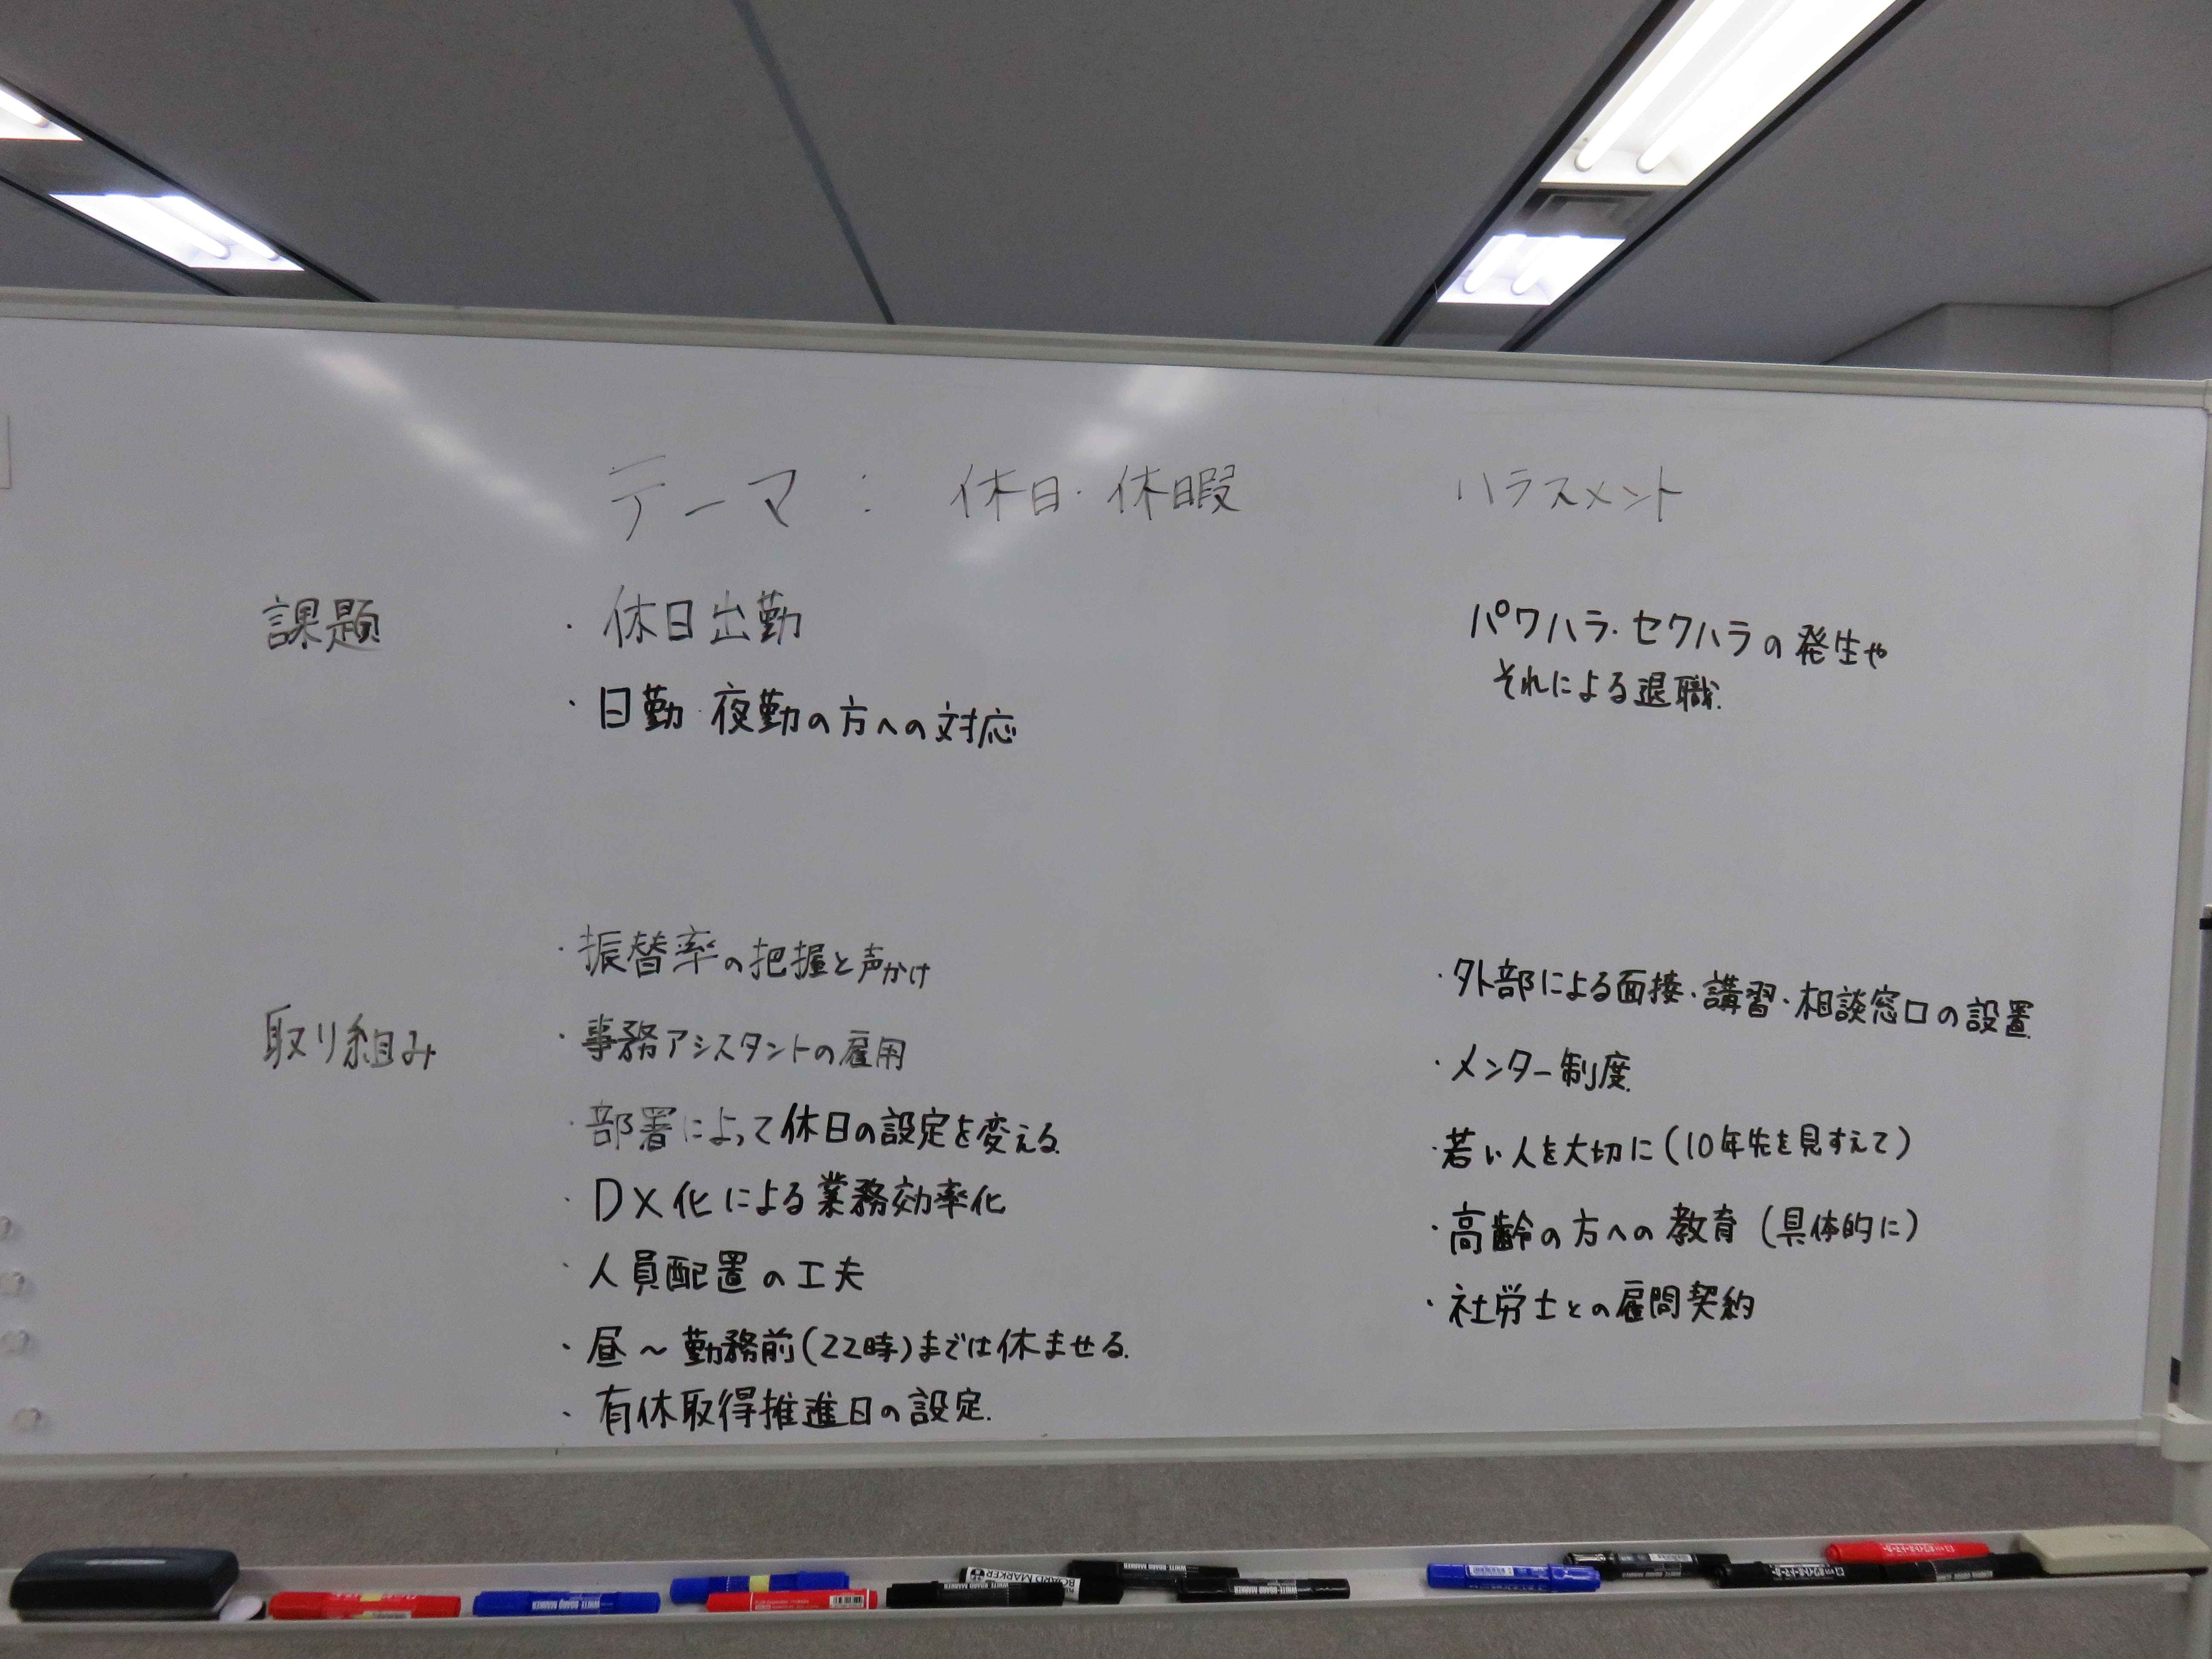 テーマ： 休日・休暇 ハラスメント
課題
・休日出勤
・日勤・夜勤の方への対応
パワハラ・セクハラの発生や
それによる退職.
取り組み
・振替率の把握と声かけ
・事務アシスタントの雇用
・部署によって休日の設定を変える.
・DX化による業務効率化
・人員配置の工夫
・昼～勤務前(22時)までは休ませる.
・有休取得推進日の設定.
・外部による面接・講習・相談窓口の設置
・メンター制度
・若い人を大切に(10年先を見すえて)
・高齢の方への教育(具体的に)
・社労士との雇問契約
WHITE BOARD MARKER
BOARD MARKER
WHITE BOARD MARKER
WHITE BOARD MARKER
WHITE BOARD MARKER